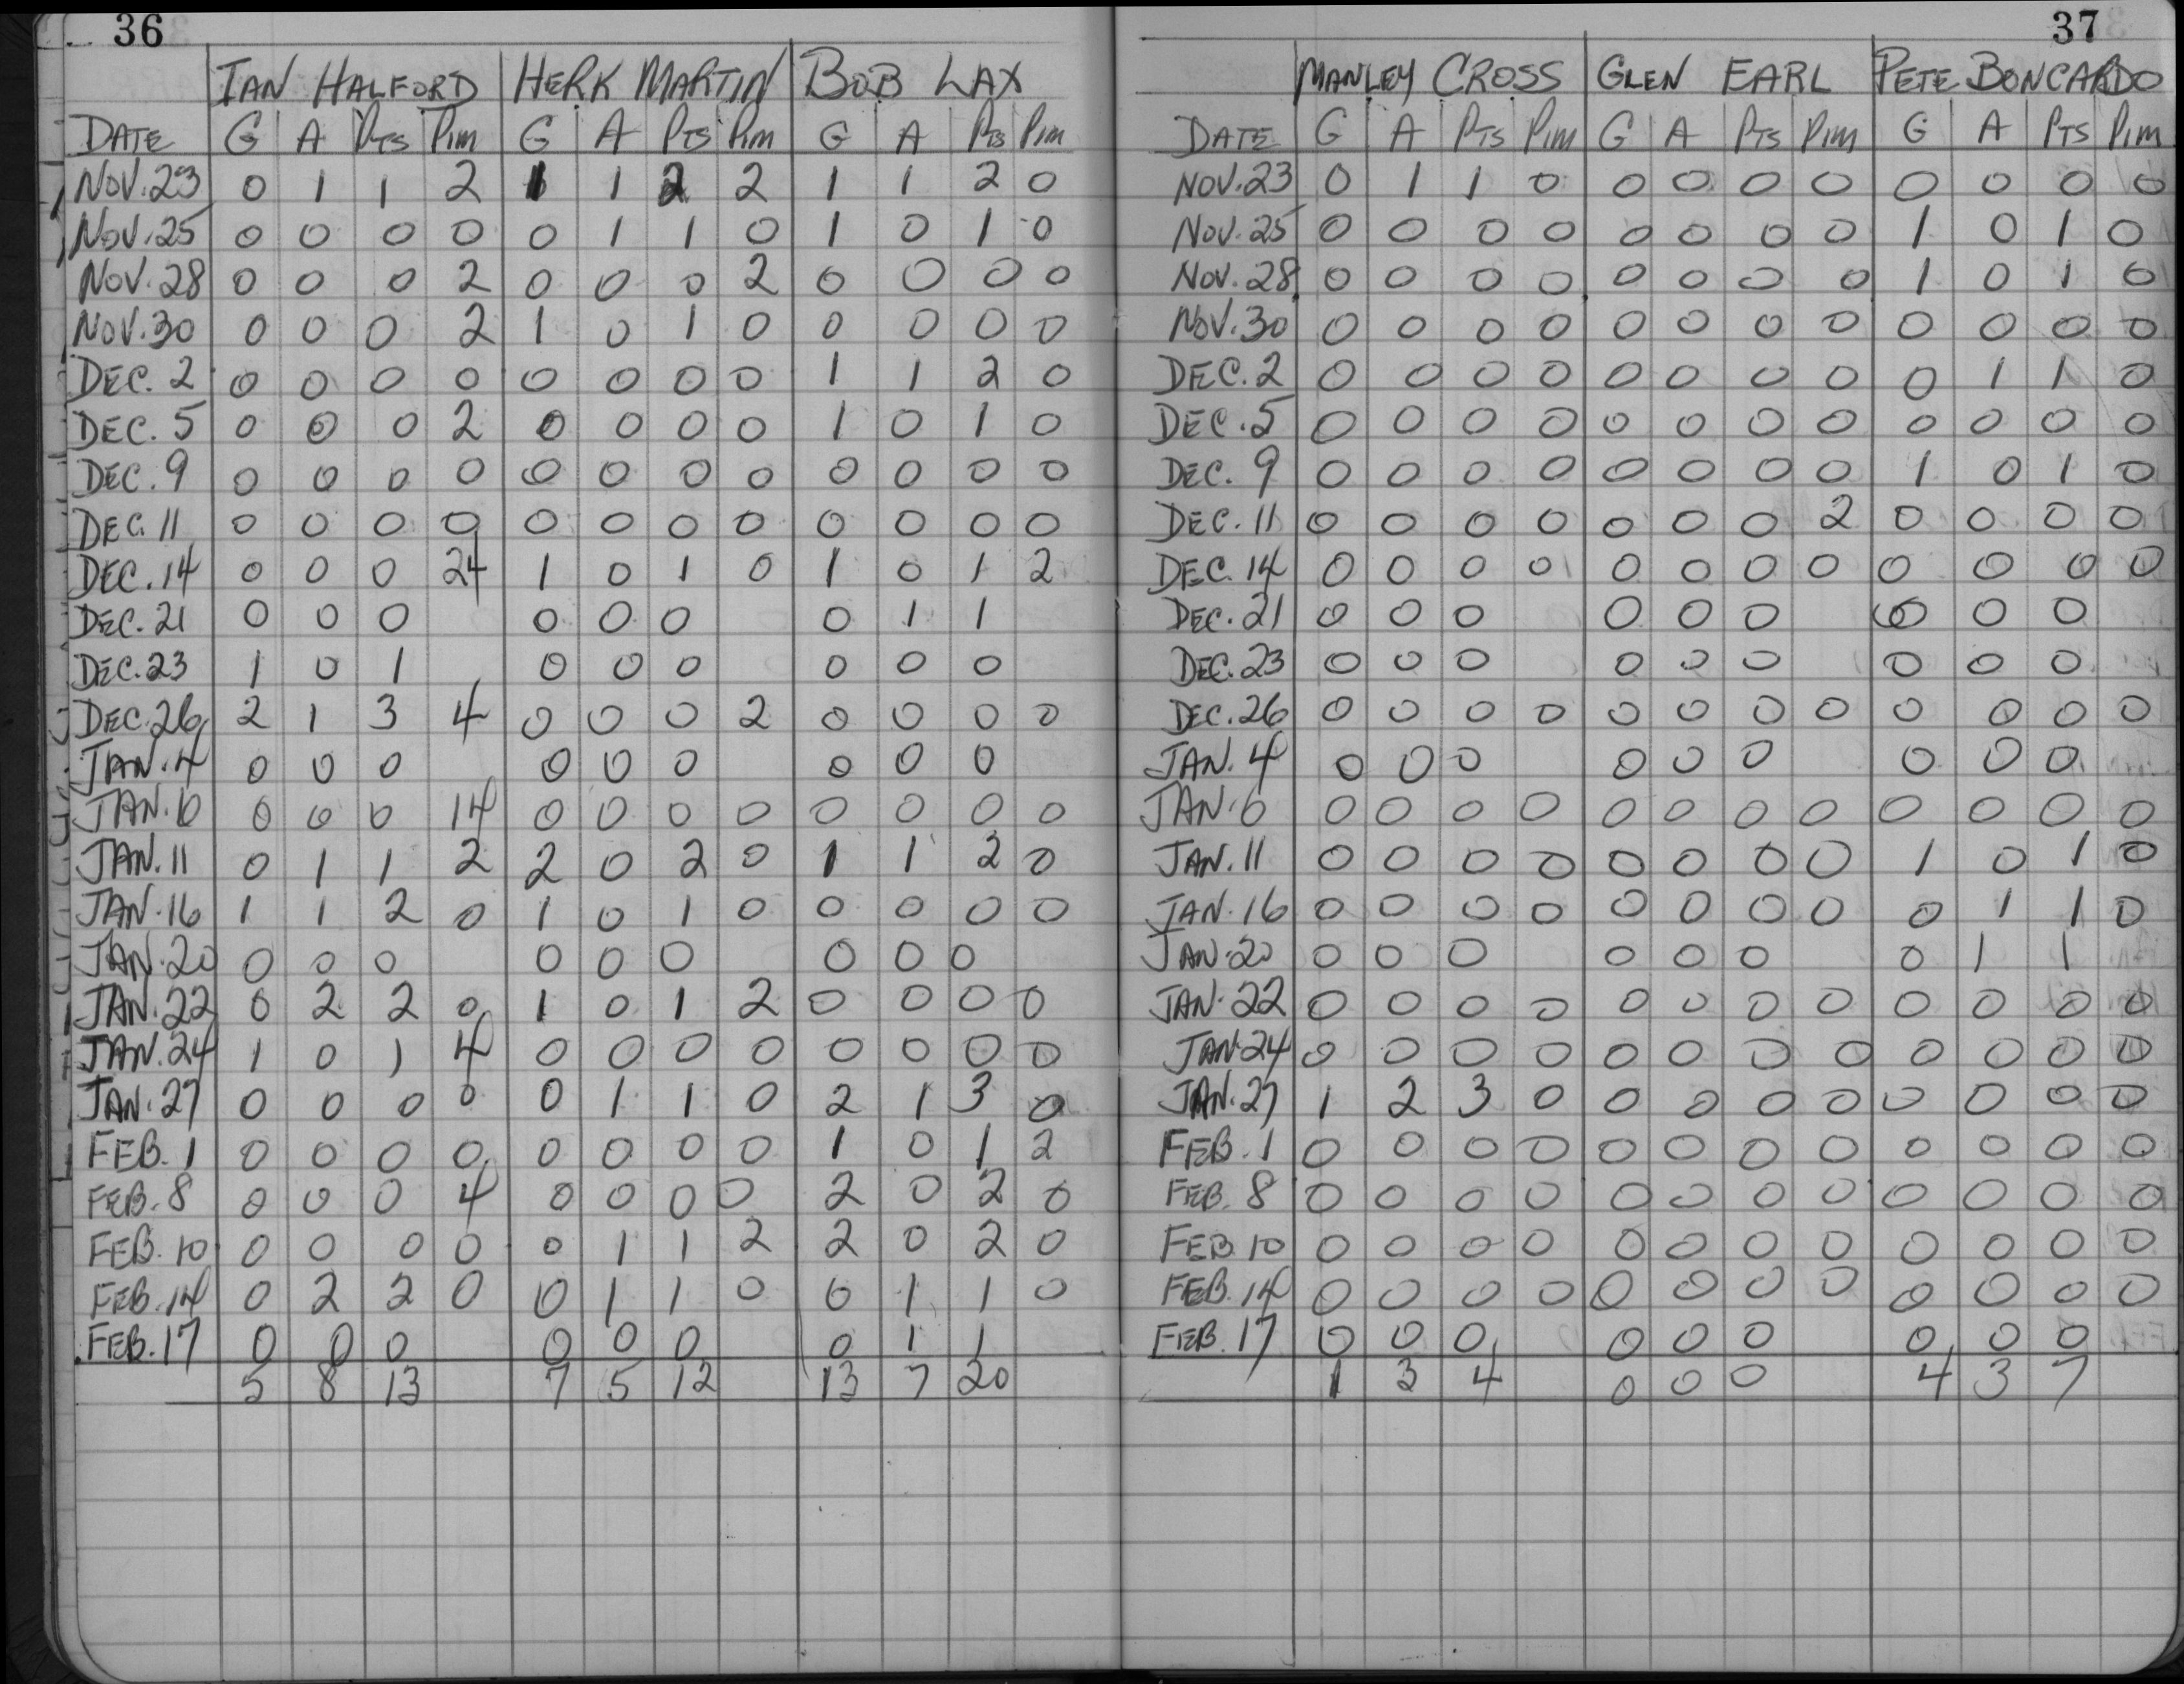 36
IAN HALFORD HERK MARTIN BOB LAX
DATE G A PTS PIM G A PTS PIM G A PTS PIM
NOV.23 0 1 1 2 1 1 2 2 1 1 2 0
NOV.25 0 0 0 0 0 1 1 0 1 0 1 0
NOV.28 0 0 0 2 0 0 0 2 0 0 0 0
NOV.30 0 0 0 2 1 0 1 0 0 0 0 0
DEC. 2 0 0 0 0 0 0 0 0 1 1 2 0
DEC. 5 0 0 0 2 0 0 0 0 1 0 1 0
DEC. 9 0 0 0 0 0 0 0 0 0 0 0 0
DEC. 11 0 0 0 0 0 0 0 0 0 0 0 0
DEC. 14 0 0 0 24 1 0 1 0 1 0 1 2
DEC. 21 0 0 0 0 0 0 0 1 1
DEC. 23 1 0 1 0 0 0 0 0 0
DEC. 26 2 1 3 4 0 0 0 2 0 0 0 0
JAN. 4 0 0 0 0 0 0 0 0 0
JAN. 6 0 0 0 14 0 0 0 0 0 0 0 0
JAN. 11 0 1 1 2 2 0 2 0 1 1 2 0
JAN. 16 1 1 2 0 1 0 1 0 0 0 0 0
JAN. 20 0 0 0 0 0 0 0 0 0
JAN. 22 0 2 2 0 1 0 1 2 0 0 0 0
JAN. 24 1 0 1 4 0 0 0 0 0 0 0 0
JAN. 27 0 0 0 0 0 1 1 0 2 1 3 0
FEB. 1 0 0 0 0 0 0 0 0 1 0 1 2
FEB. 8 0 0 0 4 0 0 0 0 2 0 2 0
FEB. 10 0 0 0 0 0 1 1 2 2 0 2 0
FEB. 14 0 2 2 0 0 1 1 0 0 1 1 0
FEB. 17 0 0 0 0 0 0 0 1 1
5 8 13 7 5 12 13 7 20
37
MANLEY CROSS GLEN EARL PETE BONCARDO
DATE G A PTS PIM G A PTS PIM G A PTS PIM
NOV.23 0 1 1 0 0 0 0 0 0 0 0 0
NOV.25 0 0 0 0 0 0 0 0 1 0 1 0
NOV.28 0 0 0 0 0 0 0 0 1 0 1 0
NOV.30 0 0 0 0 0 0 0 0 0 0 0 0
DEC. 2 0 0 0 0 0 0 0 0 0 1 1 0
DEC. 5 0 0 0 0 0 0 0 0 0 0 0 0
DEC. 9 0 0 0 0 0 0 0 0 1 0 1 0
DEC. 11 0 0 0 0 0 0 0 2 0 0 0 0
DEC. 14 0 0 0 0 0 0 0 0 0 0 0 0
DEC. 21 0 0 0 0 0 0 0 0 0
DEC. 23 0 0 0 0 0 0 0 0 0
DEC. 26 0 0 0 0 0 0 0 0 0 0 0 0
JAN. 4 0 0 0 0 0 0 0 0 0
JAN. 6 0 0 0 0 0 0 0 0 0 0 0 0
JAN. 11 0 0 0 0 0 0 0 0 1 0 1 0
JAN. 16 0 0 0 0 0 0 0 0 0 1 1 0
JAN. 20 0 0 0 0 0 0 0 1 1
JAN. 22 0 0 0 0 0 0 0 0 0 0 0 0
JAN. 24 0 0 0 0 0 0 0 0 0 0 0 0
JAN. 27 1 2 3 0 0 0 0 0 0 0 0 0
FEB. 1 0 0 0 0 0 0 0 0 0 0 0 0
FEB. 8 0 0 0 0 0 0 0 0 0 0 0 0
FEB. 10 0 0 0 0 0 0 0 0 0 0 0 0
FEB. 14 0 0 0 0 0 0 0 0 0 0 0 0
FEB. 17 0 0 0 0 0 0 0 0 0
1 3 4 0 0 0 4 3 7